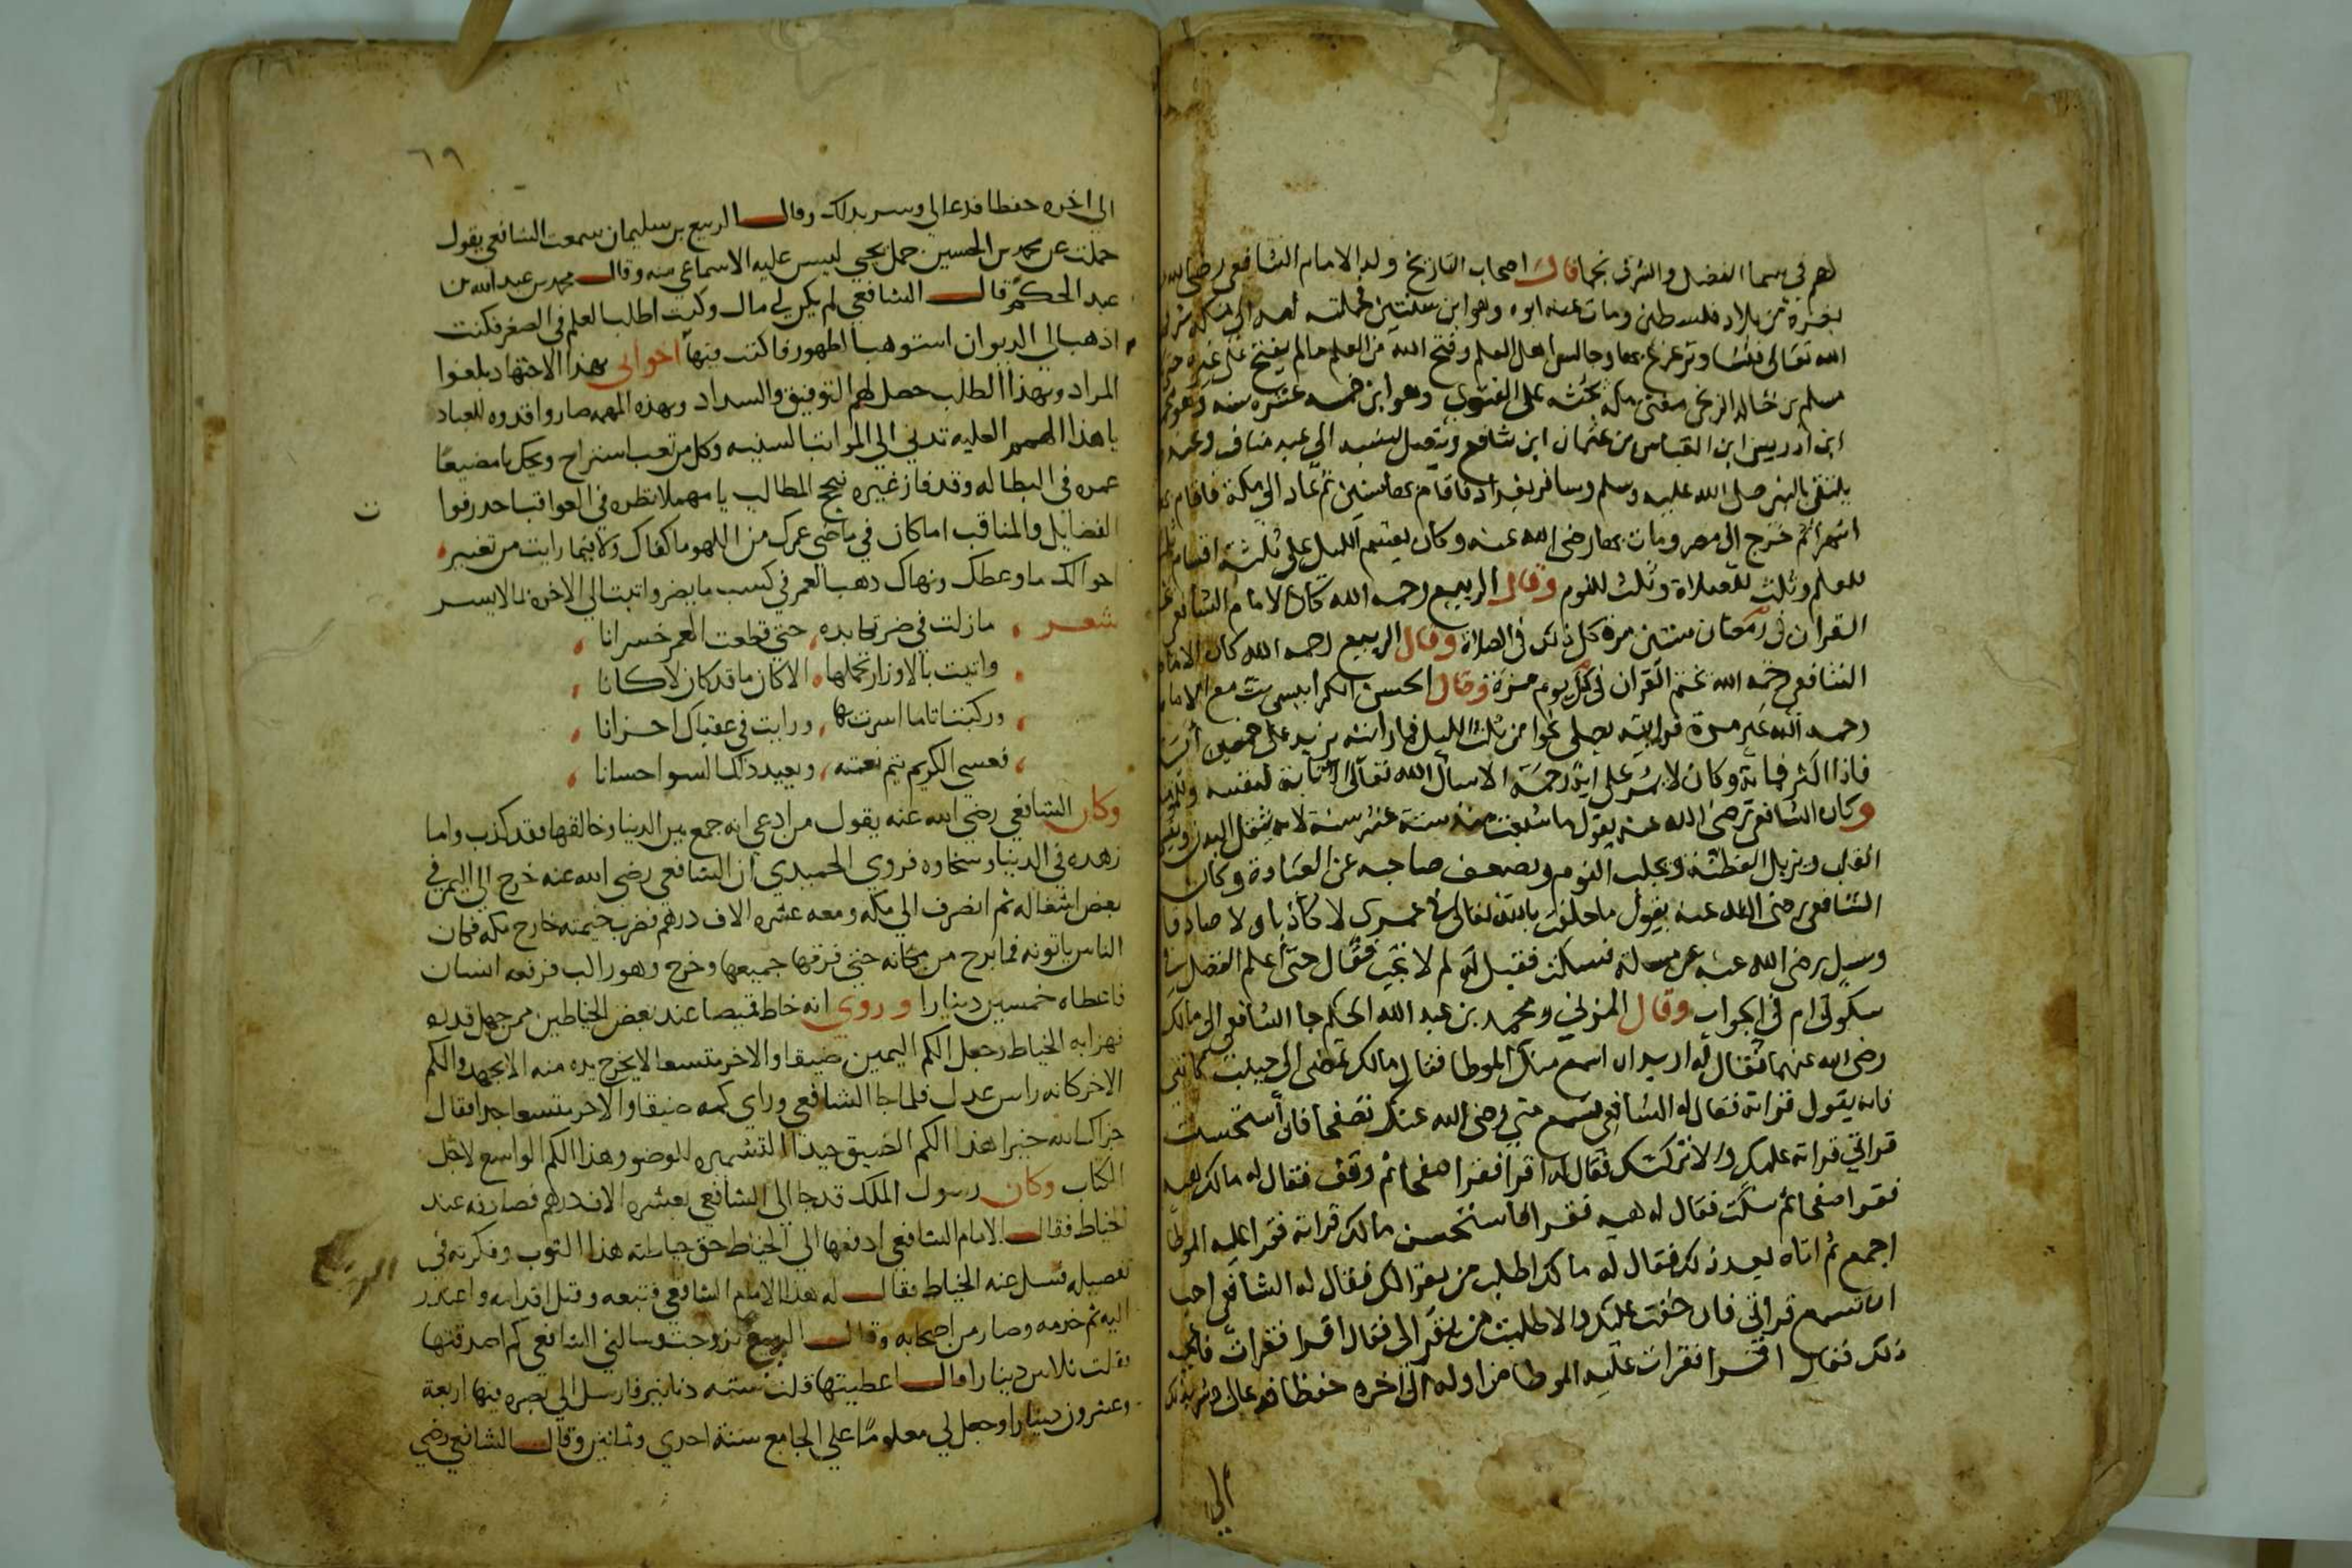 لهم في سما الفضل والشرف نجما قال اصحاب التاريخ ولد الامام الشافعي رضي الله
بغزة من بلاد فلسطين ومات عنه ابوه وهو ابن سنتين فحملته امه الى مكة شرفها
الله تعالى فنشا وترعرع بها وجالس اهل العلم وفتح الله من العلم ما لم يفتح على غيره حتى
مسلم بن خالد الزنجي مفتي مكة بحثه على الفتوى وهو ابن خمسه عشره سنه وهو محمد
ابن ادريس ابن العباس بن عثمان ابن شافع ويتصل نسبه الي عبد مناف وعنده
يلتقي بالنبي صلى الله عليه وسلم وسافر بغداد فاقام بها سنتين ثم عاد الي مكة فاقام بها
اشهرا ثم خرج الى مصر ومات بها رضى الله عنه وكان يقسم الليل على ثلثة اقسام ثلث
للعلم وثلث للصلاة وثلث للنوم وقال الربيع رحمه الله كان الامام الشافعي
القران في رمضان ستين مرة كل ذلك في الصلاة وقال الربيع رحمه الله كان الامام
الشافعي رحمه الله يختم القران في كل يوم مرة وقال الحسن الكرابيسي بت مع الامام
رحمه الله غير مرة فرايته يصلي نحوا من ثلث الليل فما رايته يزيد على خمسين اية
فاذا اكثر فماية وكان لا يمر على اية رحمة الا سال الله تعالى لنفسه
وكان الشافعي رضى الله عنه يقول ما شبعت منذ ستة عشر سنة لانه يثقل البدن ويقسي
القلب ويزيل الفطنة ويجلب النوم ويضعف صاحبه عن العبادة وكان
الشافعي رضى الله عنه يقول ما حلفت بالله تعالى في عمري لا كاذبا ولا صادقا
وسيل رضى الله عنه عن مسلة فسكت فقيل له لم لا تجيب فقال حتى اعلم الفضل في
سكوتي ام في الجواب وقال المزني ومحمد بن عبد الله الحكم جا الشافعي الى مالك
رضى الله عنهما فقال له اريد ان اسمع منك الموطا فقال مالك تمضى الى حبيب كاتبي
فانه يقول قراته فقال له الشافعي تسمع مني رضى الله عنك تصفحا فان استحسنت
قراتي قراته عليك والا تركتك فقال له اقرا فقرا صفحا ثم وقف فقال له مالك هيه
فقرا صفحا ثم سكت فقال له هيه فقرا فاستحسن مالك قراته فقرا عليه الموطا
اجمع ثم اتاه بعد ذلك فقال له مالك اطلب من يقرا لك فقال له الشافعي احب
ان تسمع قراتي فان خفت عليك والا طلبت من يقرا لى فقال اقرا فقرات فاعجبه
ذلك فقال اقرا فقرات عليه الموطا من اوله الى اخره حفظا فدعا لي وسر بذلك
الى
٦٩
الي اخره حفظا فدعا لي وسر بذلك وقال الربيع بن سليمان سمعت الشافعي يقول
حملت عن محمد بن الحسين حمل بختي ليس عليه الا سماعي منه وقال محمد بن عبد الله بن
عبد الحكم قال الشافعي لم يكن لي مال وكنت اطلب العلم في الصغر فكنت
اذهب الى الديوان استوهب الظهور فاكتب فيها اخوانى بهذا الاجتهاد بلغوا
المراد وبهذا الطلب حصل لهم التوفيق والسداد وبهذه الهمه صاروا قدوه للعباد
يا هذا الهمم العليه تدني الي المراتب السنيه وكل من تعب استراح ويحك يا مضيعا
عمره في البطاله وقد فاز غيره بنجح المطالب يا مهملا نظره في العواقب
الفضايل والمناقب اما كان في ماضي عمرك من اللهو ما كفاك ولا فيما رايت من تغيير
احوالك ما وعظك ونهاك ذهب العمر في كسب ما يضر واتيت الي الاخرة
شعر مازلت في ضر تكابده حتي قطعت العمر خسرانا
واتيت بالاوزار تحملها الا كان ما قد كان لا كانا
وركبت اثاما اسرت بها ورايت في عقباك احزانا
فعسى الكريم يتم نعمته ويعيد ذاك السوء احسانا
وكان الشافعي رضي الله عنه يقول من ادعي انه جمع بين الدنيا وخالقها فقد كذب واما
زهده في الدنيا وسخاوه فروي الحميدي ان الشافعي رضي الله عنه خرج الي اليمن في
بعض اشغاله ثم انصرف الي مكه ومعه عشره الاف درهم فضرب خيمته خارج مكه فكان
الناس ياتونه فما برح من مكانه حتي فرقها جميعها وخرج وهو راكب فرفعه انسان
فاعطاه خمسين دينارا وروي انه خاط قميصا عند بعض الخياطين ممن جهل قدره
فهزا به الخياط وجعل الكم اليمين ضيقا والاخر متسعا لا يخرج يده منه الا بجهد والكم
الاخر كانه راس عدل فلما جا الشافعي وراي كمه ضيقا والاخر متسعا جدا فقال
جزاك الله خيرا هذا الكم الضيق جيد التشميره للوضو وهذا الكم الواسع لاجل
الكتاب وكان رسول الملك قد جا الي الشافعي بعشره الاف درهم فصادفه عند
الخياط فقال الامام الشافعي ادفعها الي الخياط حق خياطته هذا الثوب وفكرته في
تفصيله فسل عنه الخياط فقال له هذا الامام الشافعي فتبعه وقبل اقدامه واعتذر
اليه ثم خدمه وصار من اصحابه وقال الربيع تزوجت وسالني الشافعي كم اصدقتها
فقلت ثلاثين دينارا فقال اعطيتها قلت ستة دنانير فارسل الي بصره فيها اربعة
وعشرون دينارا وجعل لي معلوما على الجامع سنة احدي وثمانين وقال الشافعي رضي